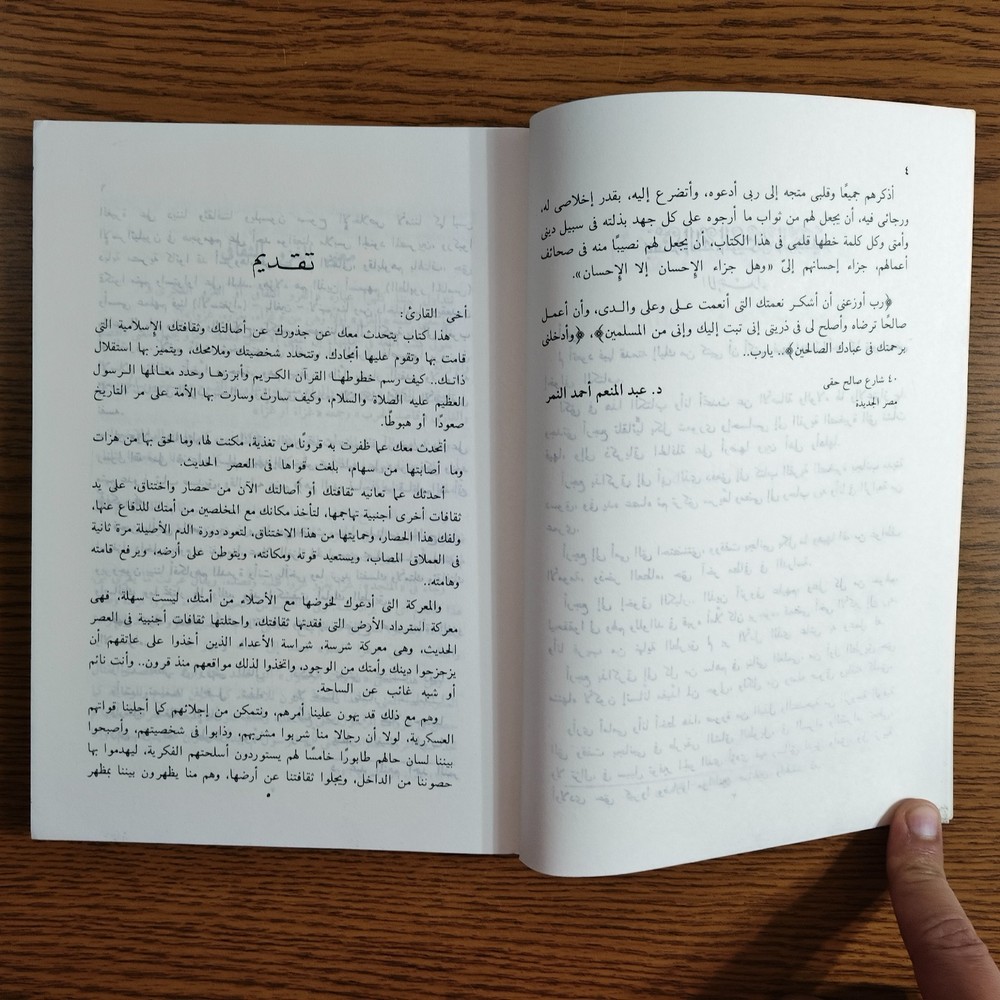 ٤
أذكرهم جميعًا وقلبى متجه إلى ربى أدعوه، وأتضرع إليه، بقدر إخلاصى له،
ورجائى فيه، أن يجعل لهم من ثواب ما أرجوه على كل جهد بذلته فى سبيل دينى
وأمتى وكل كلمة خطها قلمى فى هذا الكتاب، أن يجعل لهم نصيبًا منه فى صحائف
أعمالهم، جزاء إحسانهم إلىّ «وهل جزاء الإحسان إلا الإحسان».
﴿رب أوزعنى أن أشكر نعمتك التى أنعمت على وعلى والدى، وأن أعمل
صالحًا ترضاه وأصلح لى فى ذريتى إنى تبت إليك وإنى من المسلمين﴾، ﴿وأدخلنى
برحمتك فى عبادك الصالحين﴾.. يارب..
٤٠ شارع صالح حقى
مصر الجديدة
د. عبد المنعم أحمد النمر
تقديم
أخى القارئ:
هذا كتاب يتحدث معك عن جذورك عن أصالتك وثقافتك الإسلامية التى
قامت بها وتقوم عليها أمجادك، وتتحدد شخصيتك وملامحك، ويتميز بها استقلال
ذاتك.. كيف رسم خطوطها القرآن الكريم وأبرزها وحدد معالمها الرسول
العظيم عليه الصلاة والسلام، وكيف سارت وسارت بها الأمة على مر التاريخ
صعودًا أو هبوطًا.
أتحدث معك عما ظفرت به قرونًا من تغذية، مكنت لها، وما لحق بها من هزات
وما أصابتها من سهام، بلغت قواها فى العصر الحديث.
أحدثك عما تعانيه ثقافتك أو أصالتك الآن من حصار واختناق، على يد
ثقافات أخرى أجنبية تهاجمها، لتأخذ مكانك مع المخلصين من أمتك للدفاع عنها،
ولفك هذا الحصار، وحمايتها من هذا الاختناق، لتعود دورة الدم الأصيلة مرة ثانية
فى العملاق المصاب، ويستعيد قوته ومكانته، ويتوطن على أرضه، ويرفع قامته
وهامته..
والمعركة التى أدعوك لخوضها مع الأصلاء من أمتك، ليست سهلة، فهى
معركة استرداد الأرض التى فقدتها ثقافتك، واحتلتها ثقافات أجنبية فى العصر
الحديث، وهى معركة شرسة، شراسة الأعداء الذين أخذوا على عاتقهم أن
يزحزحوا دينك وأمتك من الوجود، واتخذوا لذلك مواقعهم منذ قرون.. وأنت نائم
أو شبه غائب عن الساحة.
وهم مع ذلك قد يهون علينا أمرهم، ونتمكن من إجلائهم كما أجلينا قواتهم
العسكرية، لولا أن رجالا منا شربوا مشربهم، وذابوا فى شخصيتهم، وأصبحوا
بيننا لسان حالهم طابورًا خامسًا لهم يستوردون أسلحتهم الفكرية، ليهدموا بها
حصوننا من الداخل، ويجلوا ثقافتنا عن أرضها، وهم منا يظهرون بيننا بمظهر